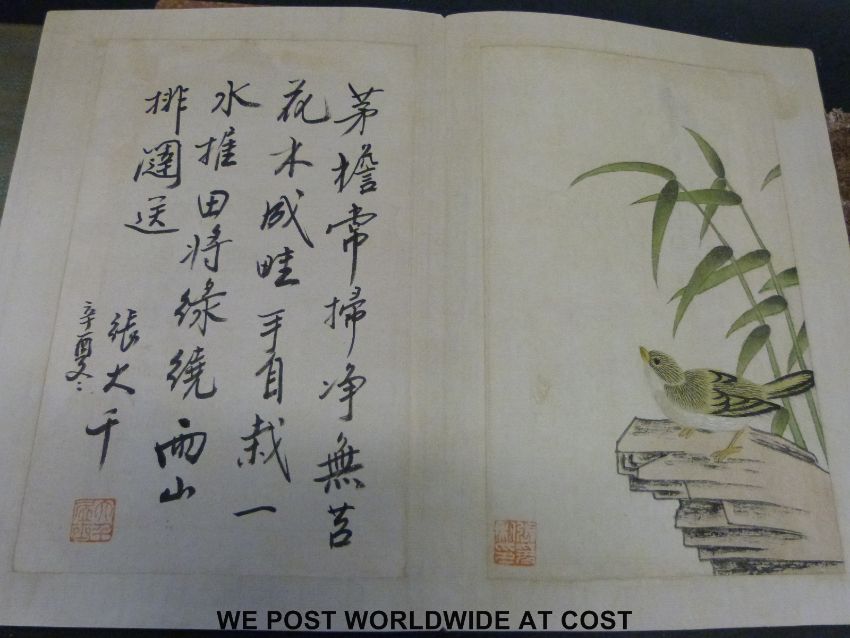 茅檐常掃净無苔
花木成畦手自栽一
水推田將綠繞兩山
排闥送
張大千
辛酉冬
WE POST WORLDWIDE AT COST